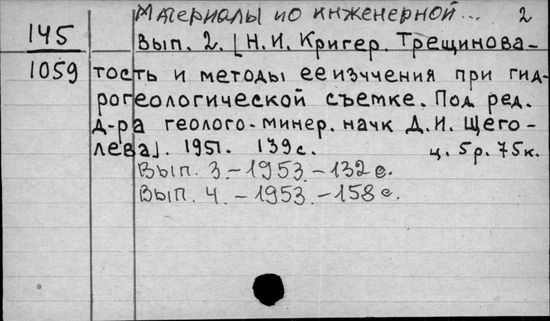 Материалы по инженерной... 2
145 Вып. 2. [Н. И. Кригер. Трещинова-
1059 тость и методы ее изучения при гид-
рогеологической съемке. Под ред.
д-ра геолого-минер. наук Д. И. Щего-
лева]. 1951. 139 с. ц. 5 р. 75 к.
Вып. 3. - 1953. - 132 с.
Вып. 4. - 1953. - 158 с.